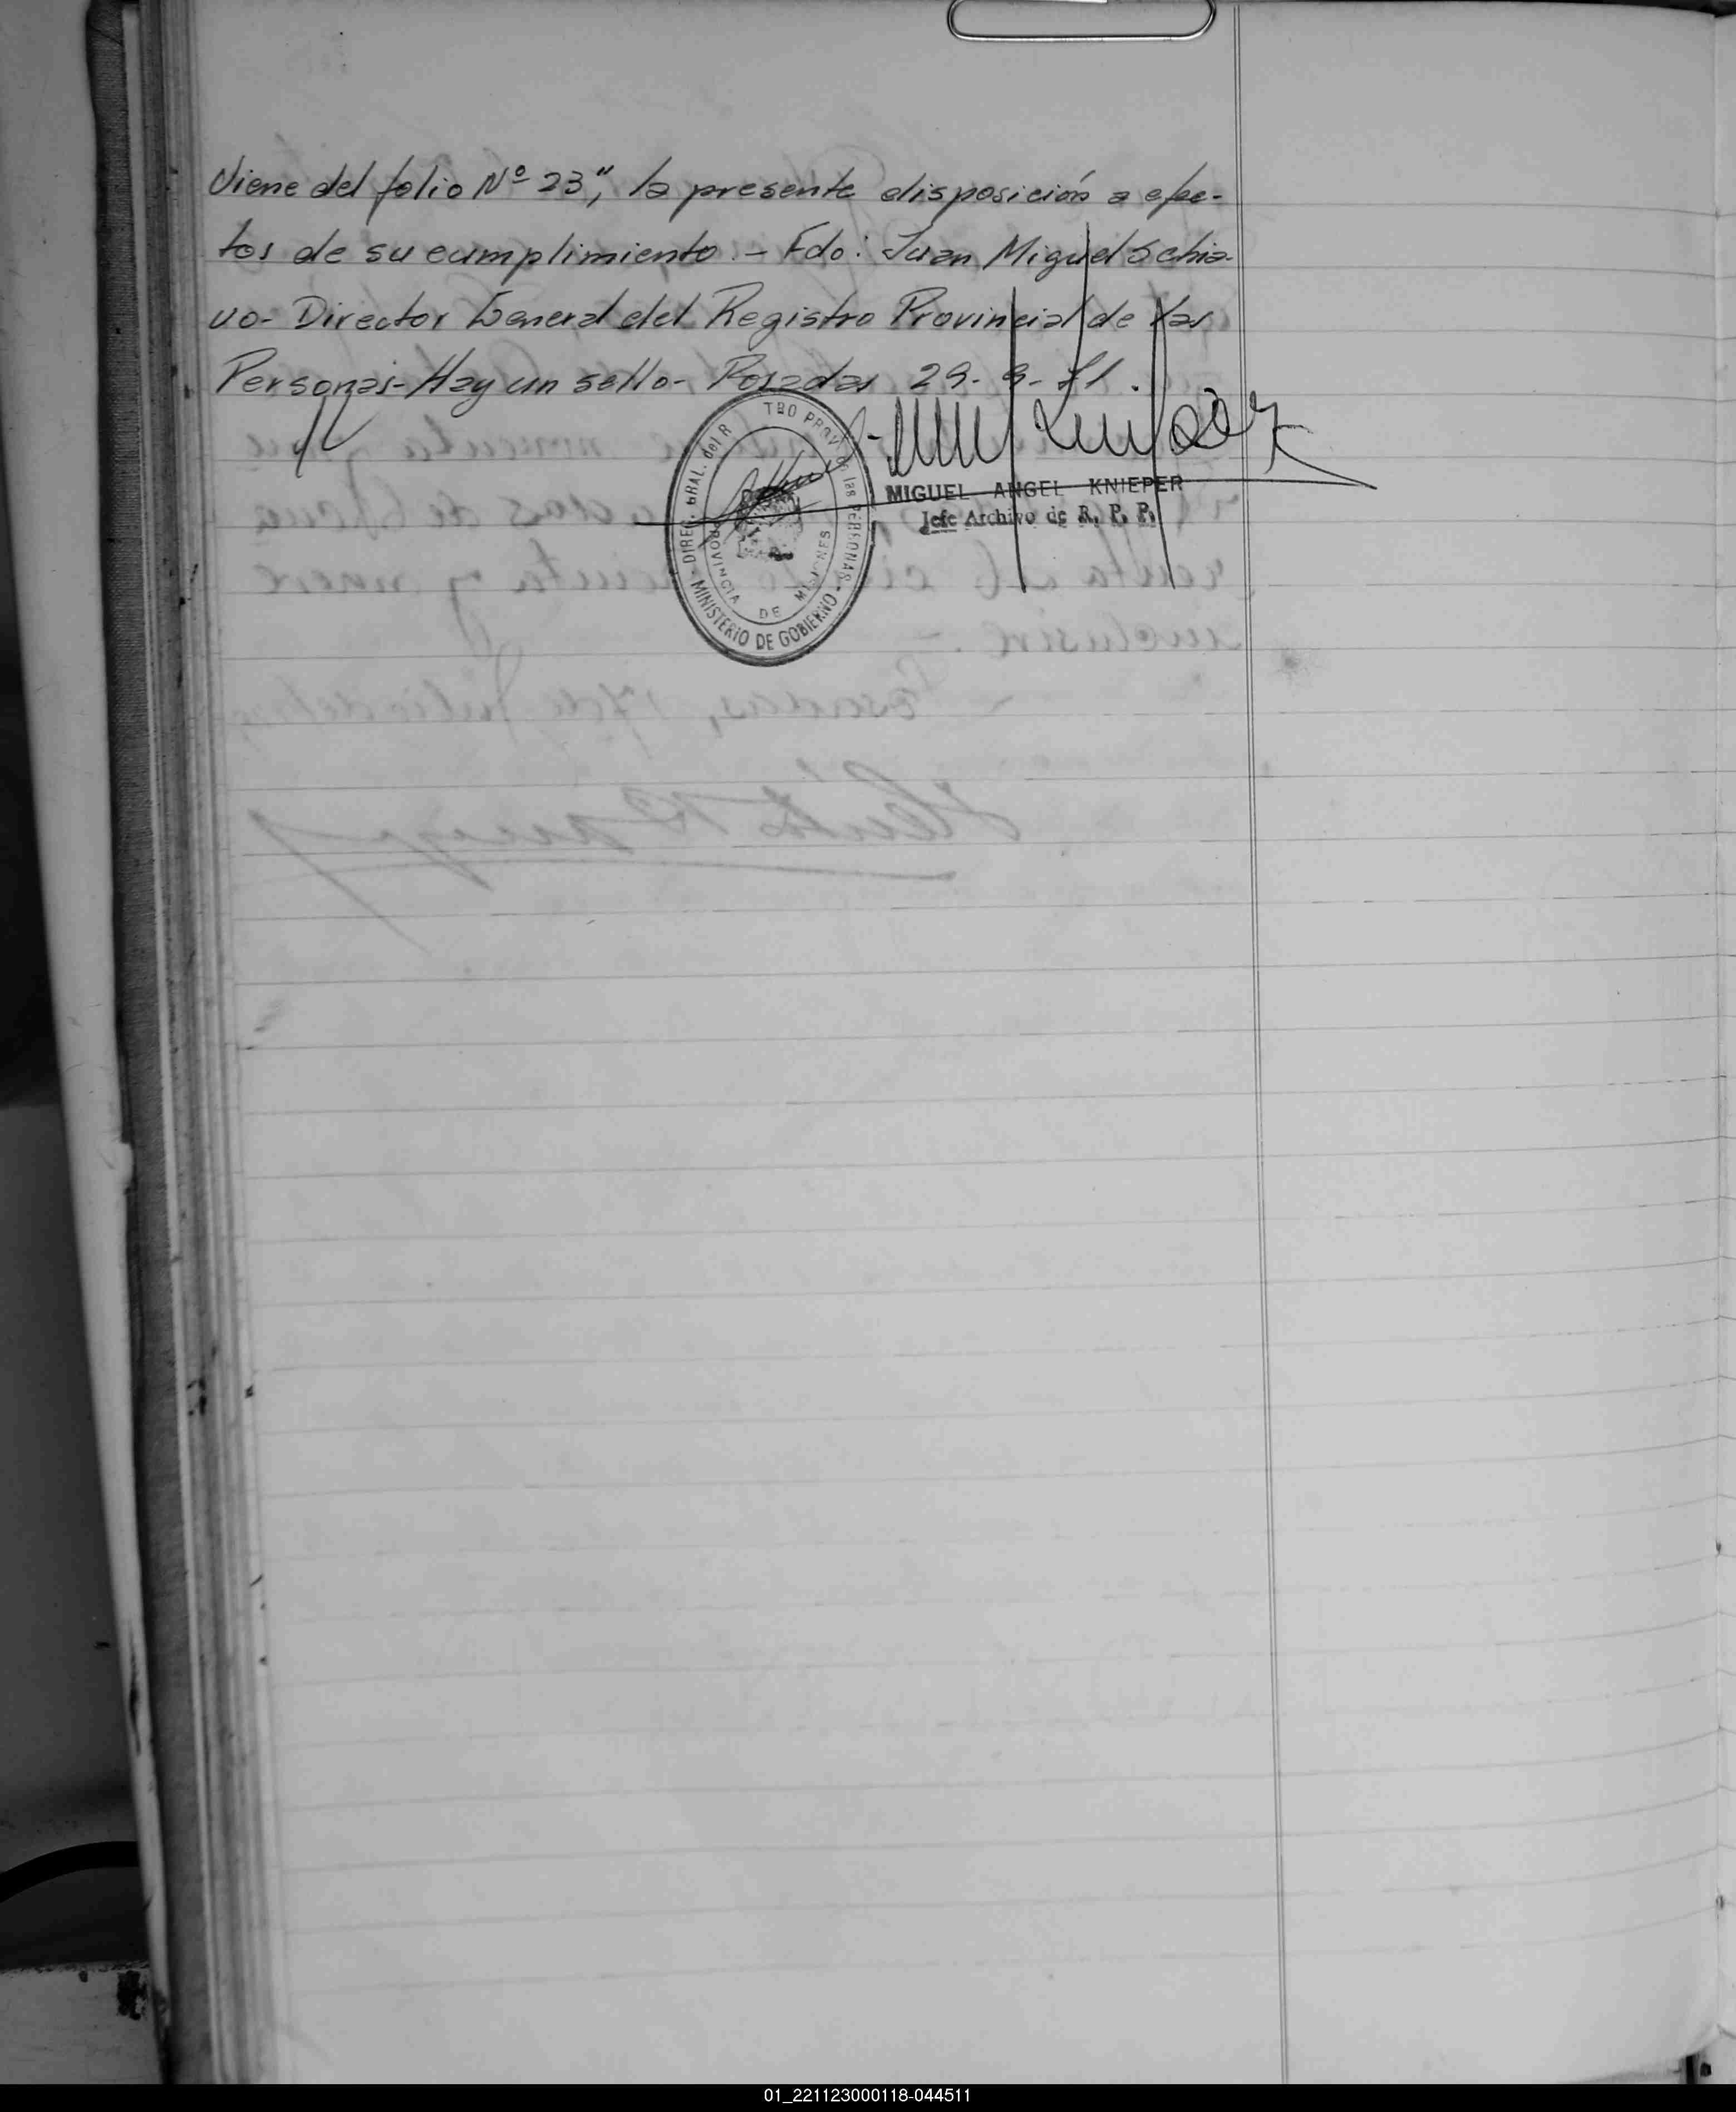 Viene del folio Nº 23", la presente disposición a efec-
tos de su cumplimiento.- Fdo: Juan Miguel Schia-
vo- Director General del Registro Provincial de las
Personas- Hay un sello- Posadas 29-9-81.
DIREC. GRAL. del R TRO PROV. de las PERSONAS
MINISTERIO DE GOBIERNO
PROVINCIA DE MISIONES
MIGUEL ANGEL KNIEPER
Jefe Archivo de R. P. P.
01_221123000118-044511